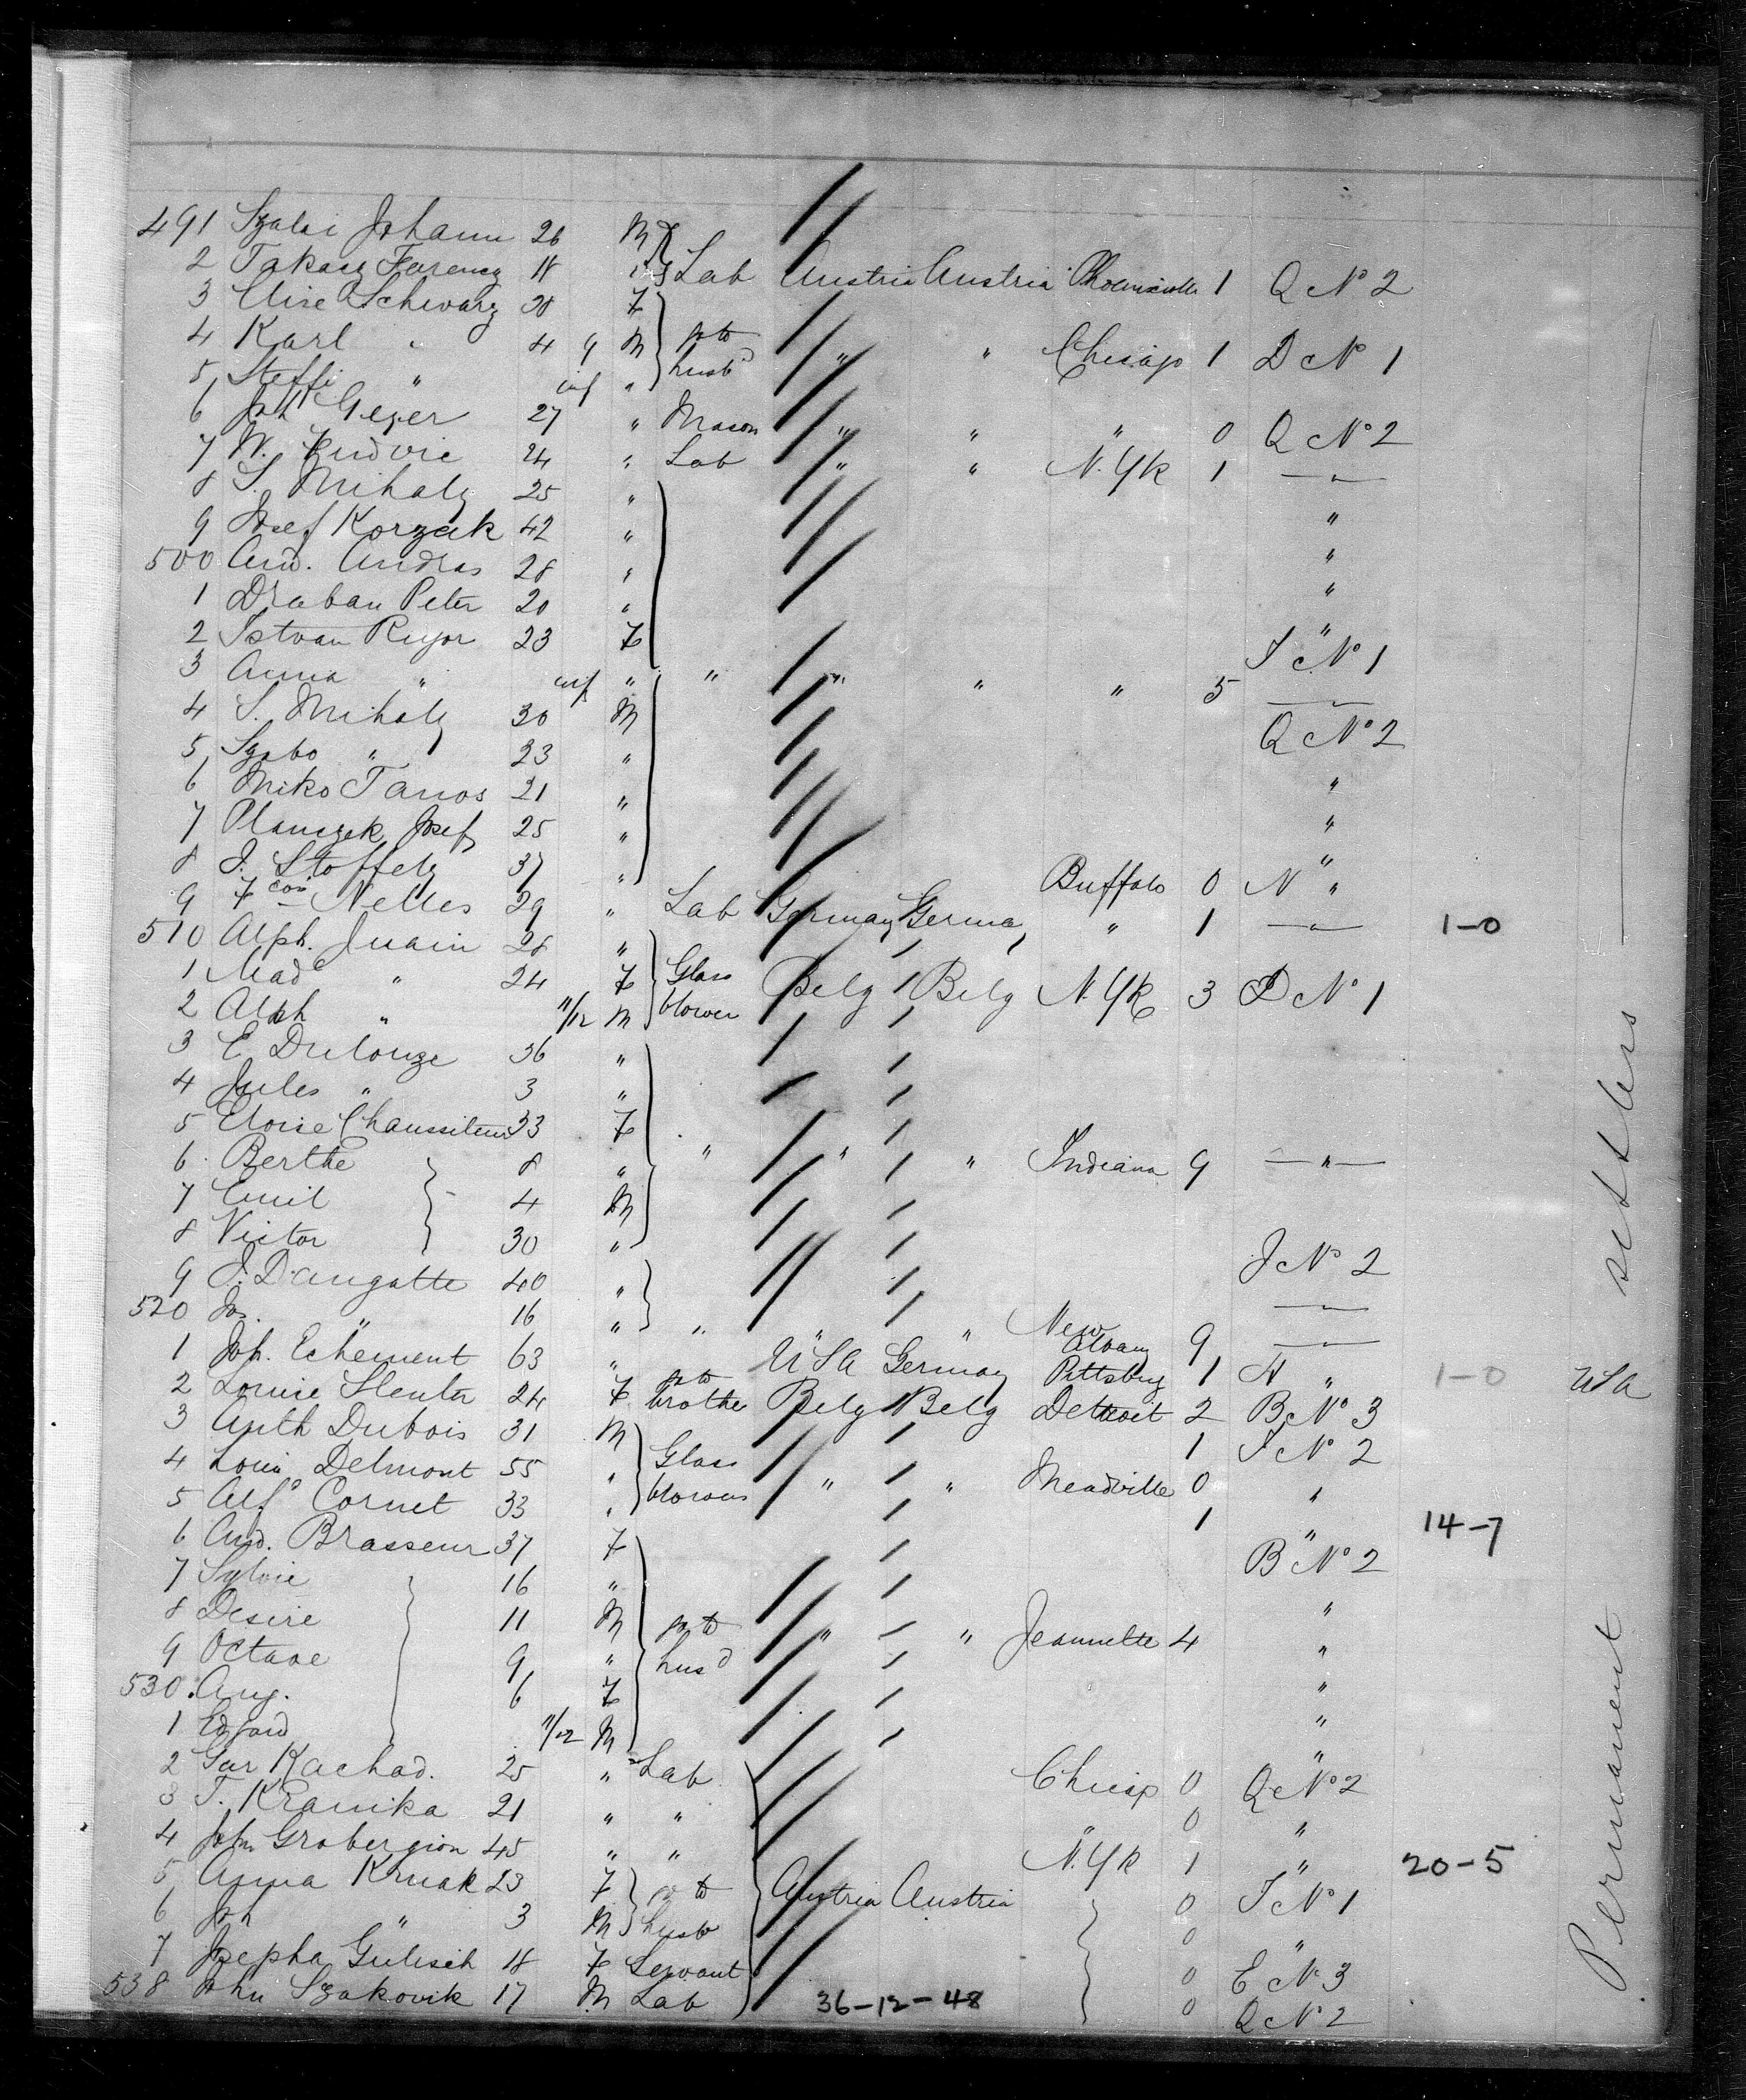 491 Szalai Johann 26 M
2 Takacz Ferencz 18 " Lab Austria Austria Phoenixville 1 Q No 2
3 Elise Schwarz 28 F
4 Karl " 4 M to husbd " " Chicago 1 D No 1
5 Steffi " inf "
6 Joh Geyer 27 " Mason " " " 0 Q No 2
7 W. Ludvic 24 " Lab " " N. Yk 1 — " —
8 S. Mihaly 25 " "
9 Josef Korzak 42 " "
500 And. Andras 28 " "
1 Draban Peter 20 "
2 Istvan Rujor 23 F " I No 1
3 Anna " inf " " " " " 5 — " —
4 S. Mihaly 30 M Q No 2
5 Szabo " 23 "
6 Miko Janos 21 " "
7 Planczek Josef 25 " "
8 J. Stoffely 37 " "
9 Fcois Nelles 29 " Lab Germany Germany Buffalo 0 N "
510 Alph. Juain 28 " " 1 — " — 1-0
1 Made " 24 F Glass
2 Alph " 11/12 M blower Belg Belg N. Yk 3 D No 1
3 E. Dulouze 36 "
4 Jules " 3 "
5 Eloise Chaussiteur 33 F
6 Berthe 8 " " " " Indiana 9 — " —
7 Emil 4 M
8 Victor 30 "
9 J. Dangotte 40 " J No 2
520 Jos. " 16 " " " " New Albany 9 — " —
1 Joh. Echement 63 " USA Germany Pittsburg 1 N " 1-0 USA
2 Louise Slenter 24 F to brother Belg Belg Detroit 2 B No 3
3 Auth Dubois 31 M 1 I No 2
4 Louis Delmont 55 " Glass blowers " " Meadville 0 "
5 Alfd Cornet 33 " 1 " 14-7
6 And. Brasseur 37 F B No 2
7 Sylvie 16 "
8 Desire 11 M to husd " " Jeannette 4 "
9 Octave 9 " "
530 Aug. 6 F "
1 Edgard 11/12 M "
2 Gur Kachad. 25 " Lab Chicago 0 Q No 2
3 T. Kranika 21 " " " 0 "
4 John Grobergion 45 " " N. Yk 1 " 20-5
5 Anna Krnak 23 F to husb Austria Austria 0 I No 1
6 Joh " 3 M 0 "
7 Josepha Gulisch 18 F Servant 0 E No 3
538 John Szakovik 17 M Lab 36-12-48 0 Q No 2
Permanent settlers